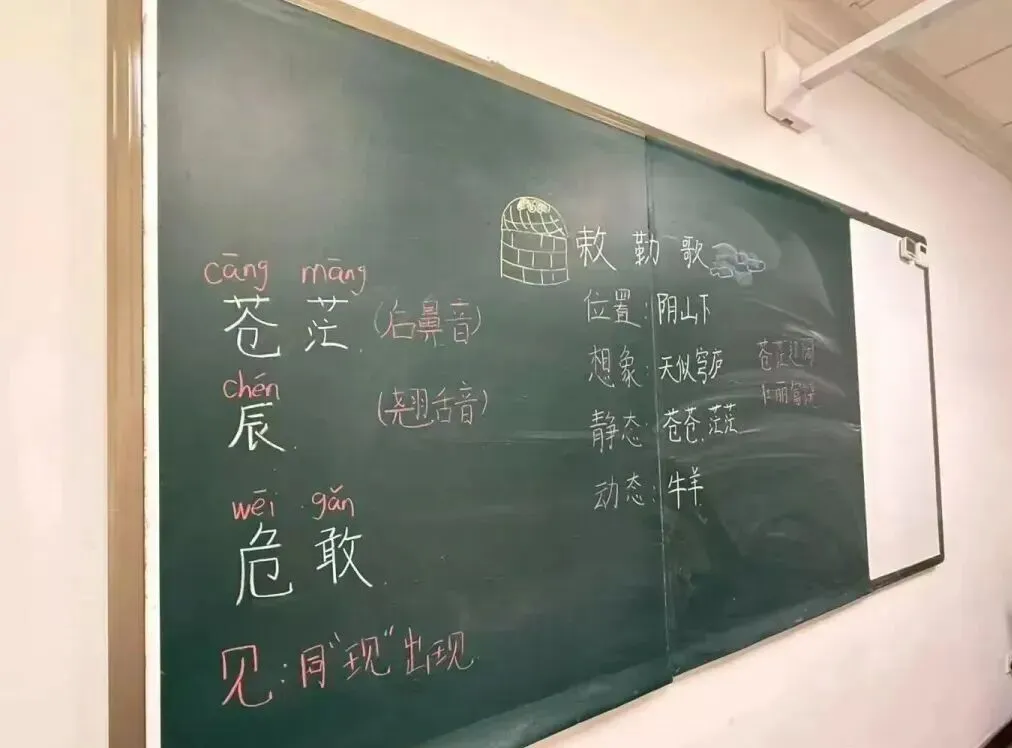 cāng māng
苍茫(后鼻音)
chén
辰(翘舌音)
wēi gǎn
危敢
见:同"现"出现
敕勒歌
位置:阴山下
想象:天似穹庐
静态:苍苍、茫茫
动态:牛羊
苍茫辽阔
壮丽富饶